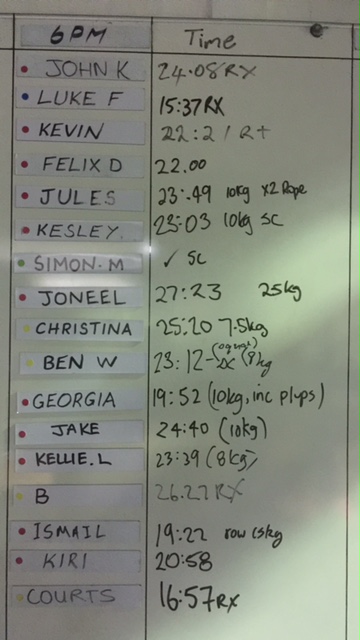 6PM Time
JOHN K 24.08 RX
LUKE F 15:37 RX
KEVIN 22:21 R+
FELIX D 22.00
JULES 23:49 10kg X2 Rope
KESLEY. 23:03 10kg SC
SIMON. M ✓ SC
JONEEL 27:23 25kg
CHRISTINA 25:20 7.5kg
BEN W 23:12 - (8kg)
GEORGIA 19:52 (10kg, inc plups)
JAKE 24:40 (10kg)
KELLIE.L 23:39 (8kg)
B 26.27 RX
ISMAIL 19:22 row
KIRI 20:58
COURTS 16:57 RX